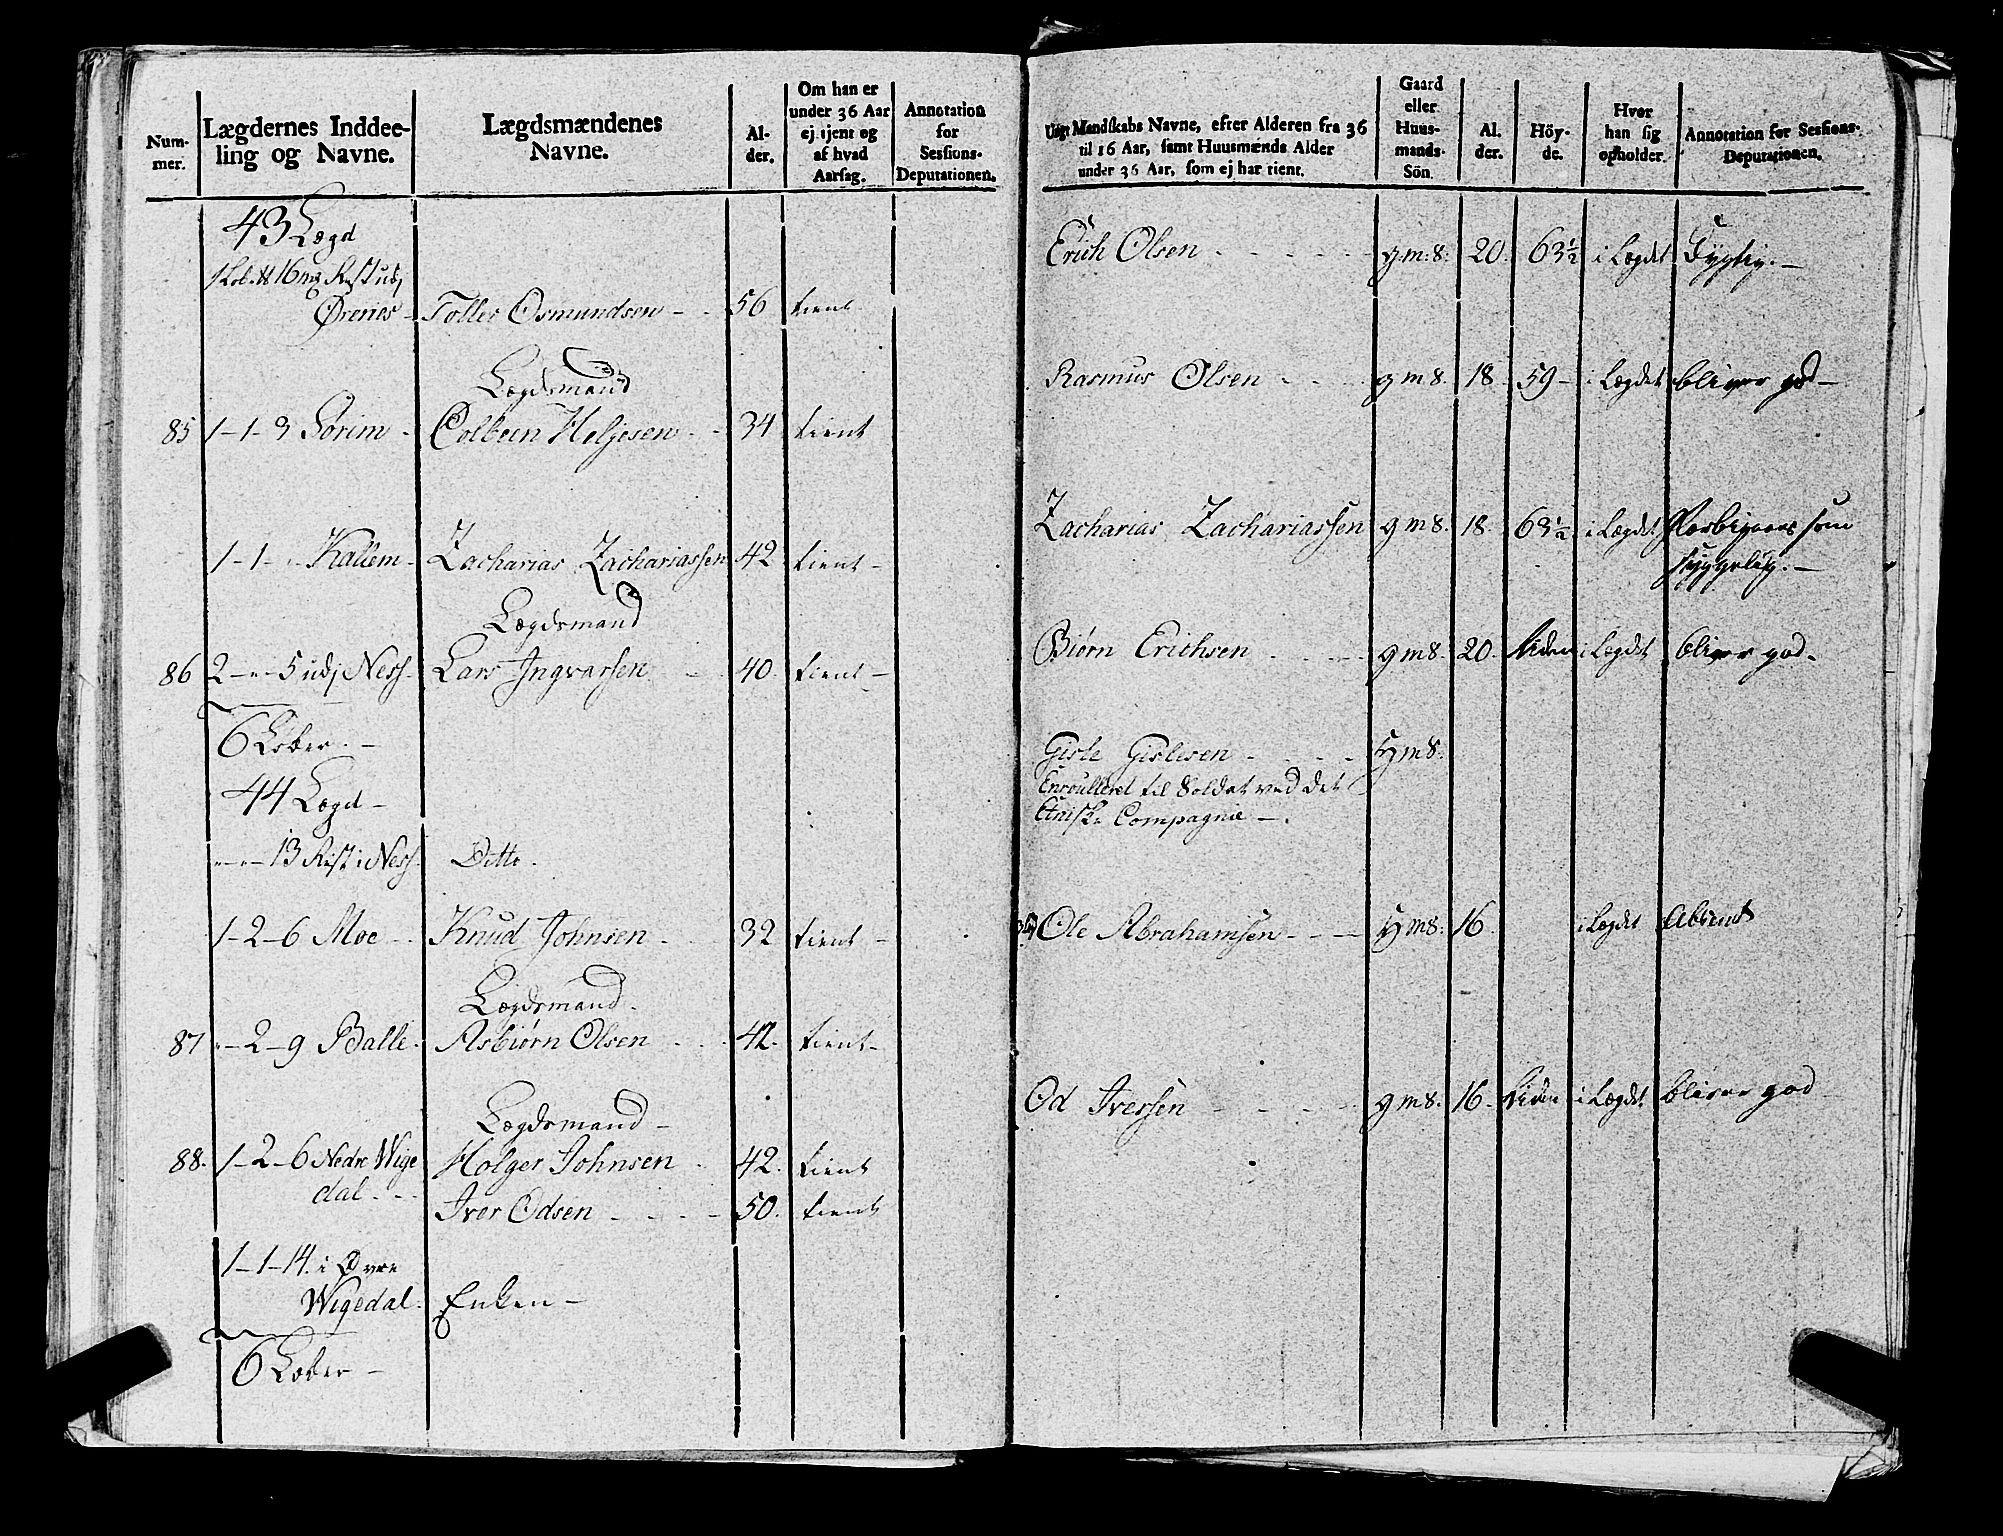 Num-
mer.
Lægdernes Inddee-
ling og Navne.
Lægdsmændenes
Navne.
Al-
der.
Om han er
under 36 Aar
ej tjent og
af hvad
Aarsag.
Annotation
for
Sessions-
Deputationen.
43 Lægd
16 mg Rest udj
Ørenes - Toller Osmundsen - 56 tient
Lægdsmand
85 1-1-3 Sørim - Colbeen Heljesen - 34 tient
1-1-" Kallem - Zacharias Zachariassen 42 tient -
Lægdsmand
86 2-"-5 udj Ness. Lars Ingvarsen 40. tient -
6 Løber. -
44 Lægd -
"-"-13 Rest i Ness. Ditto.
1-2-6 Moe - Knud Johnsen 32 tient -
Lægdsmand.
87 "-2-9 Balle. Asbiørn Olsen 42. tient -
Lægdsmand -
88. 1-2-6 Nedre Wige Holger Johnsen 42. tient
dal - - Iver Odsen - 50. tient
1-1-14. i Øvre
Wigedal. Enken -
6 Løber -
Ungt Mandskabs Navne, efter Alderen fra 36
til 16 Aar, samt Huusmænds Alder
under 36 Aar, som ej har tient.
Gaard
eller
Huus-
mands-
Sön.
Al.
der.
Höy-
de.
Hvor
han sig
opholder.
Annotation for Sessions-
Deputationen.
Erich Olsen - - - g.m.s. 20. 63½ i Lægdet Sygelig. -
Rasmus Olsen - - g m s. 18. 59 - i Lægdet bliver god -
Zacharias Zachariassen g m s. 18. 63½ i Lægdet Forbigaaes som
sygelig. -
Biørn Erichsen - - - g m s. 20. liden i Lægdet bliver god.
Gisle Gislesen - - - h m s.
Enroulleret til Soldat ved det
Etniske Compagnie -.
Ole Abrahamsen - - - h m s. 16. i Lægdet Absent
Od Iversen - - - g m s. 16. Liden i Lægdet bliver god